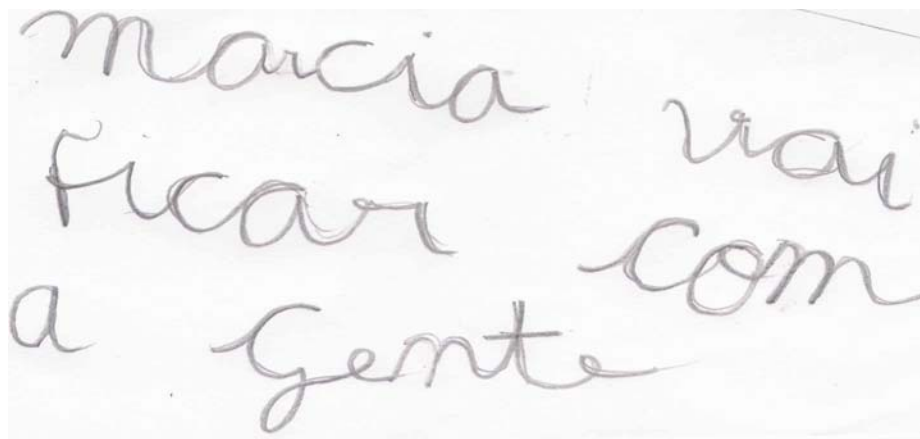 marcia vai
ficar com
a gente